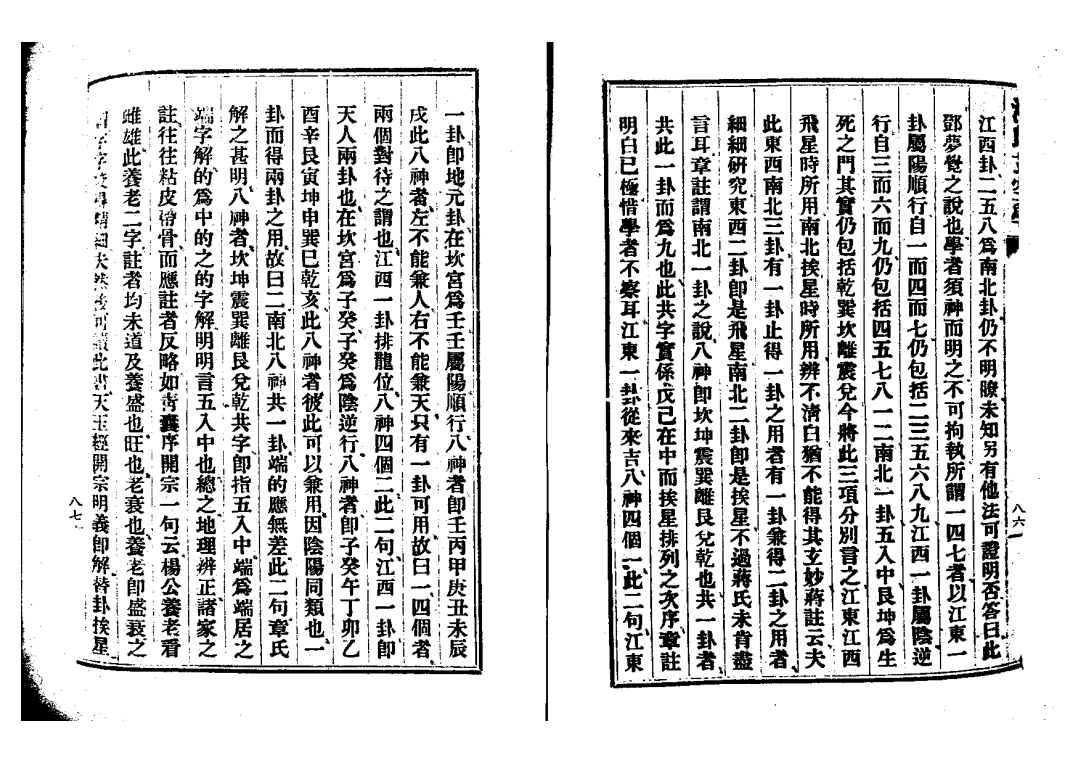 江西卦二五八爲南北卦仍不明瞭未知另有他法可證明否答曰此
鄧夢覺之說也學者須神而明之不可拘執所謂一四七者以江東一
卦屬陽順行自一而四而七仍包括二三五六八九江西一卦屬陰逆
行自三而六而九仍包括四五七八一二南北一卦五入中艮坤爲生
死之門其實仍包括乾巽坎離震兌今將此三項分別言之江東江西
飛星時所用南北挨星時所用辨不淸白猶不能得其玄妙蔣註云夫
此東西南北三卦有一卦止得一卦之用者有一卦兼得二卦之用者
細細硏究東西二卦卽是飛星南北二卦卽是挨星不過蔣氏未肯盡
言耳章註謂南北一卦之說八神卽坎坤震巽離艮兌乾也共一卦者
共此一卦而爲九也此共字實係戊己在中而挨星排列之次序章註
明白已極惜學者不察耳江東一卦從來吉八神四個一此二句江東
八六
一卦卽地元卦在坎宮爲壬壬屬陽順行八神者卽壬丙甲庚丑未辰
戌此八神者左不能兼人右不能兼天只有一卦可用故曰一四個者
兩個對待之謂也江西一卦排龍位八神四個二此二句江西一卦卽
天人兩卦也在坎宮爲子癸子癸爲陰逆行八神者卽子癸午丁卯乙
酉辛艮寅坤申巽巳乾亥此八神者彼此可以兼用因陰陽同類也一
卦而得兩卦之用故曰二南北八神共一卦端的應無差此二句章氏
解之甚明八神者坎坤震巽離艮兌乾共字卽指五入中端爲端居之
端字解的爲中的之的字解明明言五入中也總之地理辨正諸家之
註往往粘皮帶骨而應註者反略如靑囊序開宗一句云楊公養老看
雌雄此養老二字註者均未道及養盛也旺也老衰也養老卽盛衰之
可讀此書天玉經開宗明義卽解替卦挨星
八七